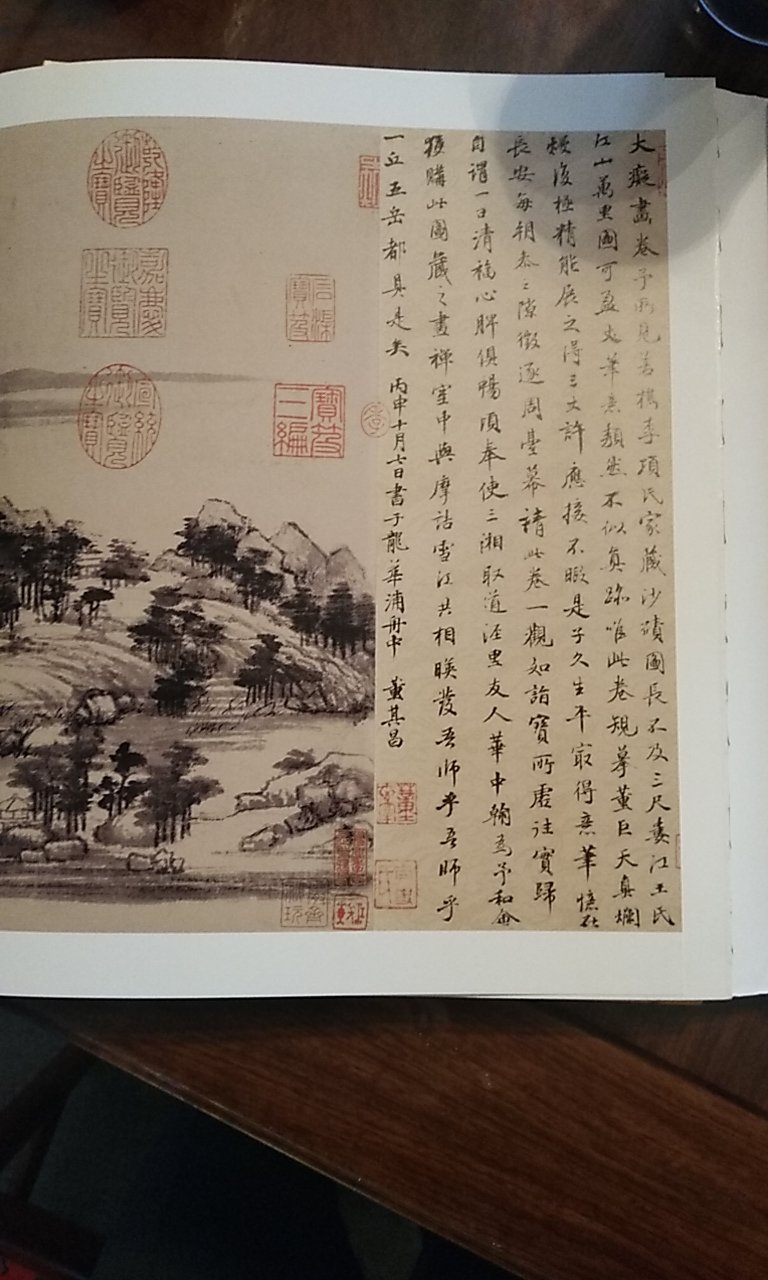 大癡畫卷予所見若檇李項氏家藏沙磧圖長不及三尺婁江王氏
江山萬里圖可盈丈筆意頹然不似真跡唯此卷規摹董巨天真爛
熳復極精能展之得三丈許應接不暇是子久生平冣得意筆憶在
長安每朝參之隙徵逐周臺幕請此卷一觀如詣寶所虛往實歸
自謂一日清福心脾俱暢頃奉使三湘取道涇里友人華中翰為予和會
獲購此圖藏之畫禪室中與摩詰雪江共相暎發吾師乎吾師乎
一丘五岳都具是矣 丙申十月七日書于龍華浦舟中 董其昌
石渠寶笈
寶笈三編
乾隆御覽之寶
嘉慶御覽之寶
宣統御覽之寶